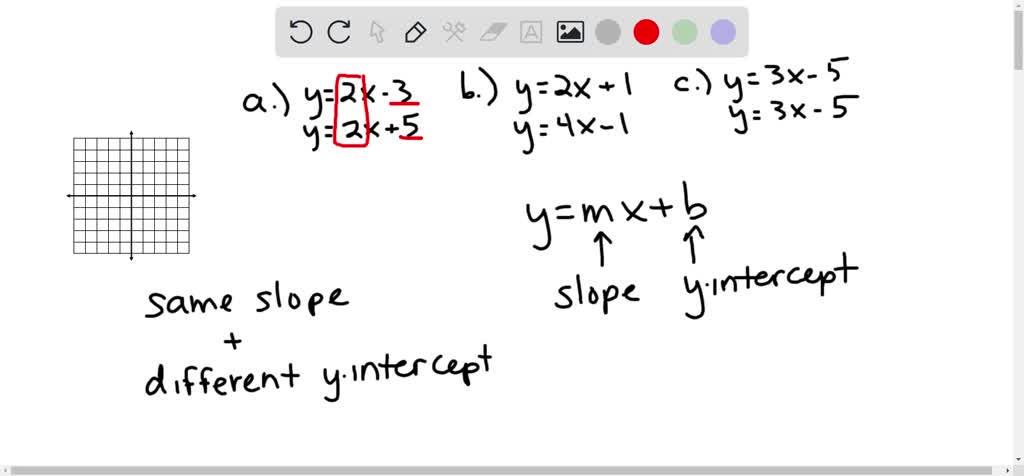 a.) y=2x-3
y=2x+5
b.) y=2x+1
y=4x-1
c.) y=3x-5
y=3x-5
y=mx+b
slope y.intercept
same slope
+
different y.intercept
A